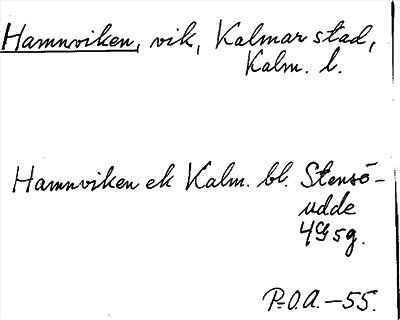 Hamnviken, vik, Kalmar stad,
Kalm. l.
Hamnviken ek Kalm. bl. Stensö-
udde
4G5g.
P-O.A.-55.